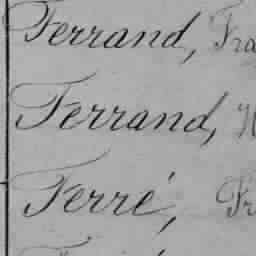 Ferrand, Fra
Ferrand,
Ferré, Fr